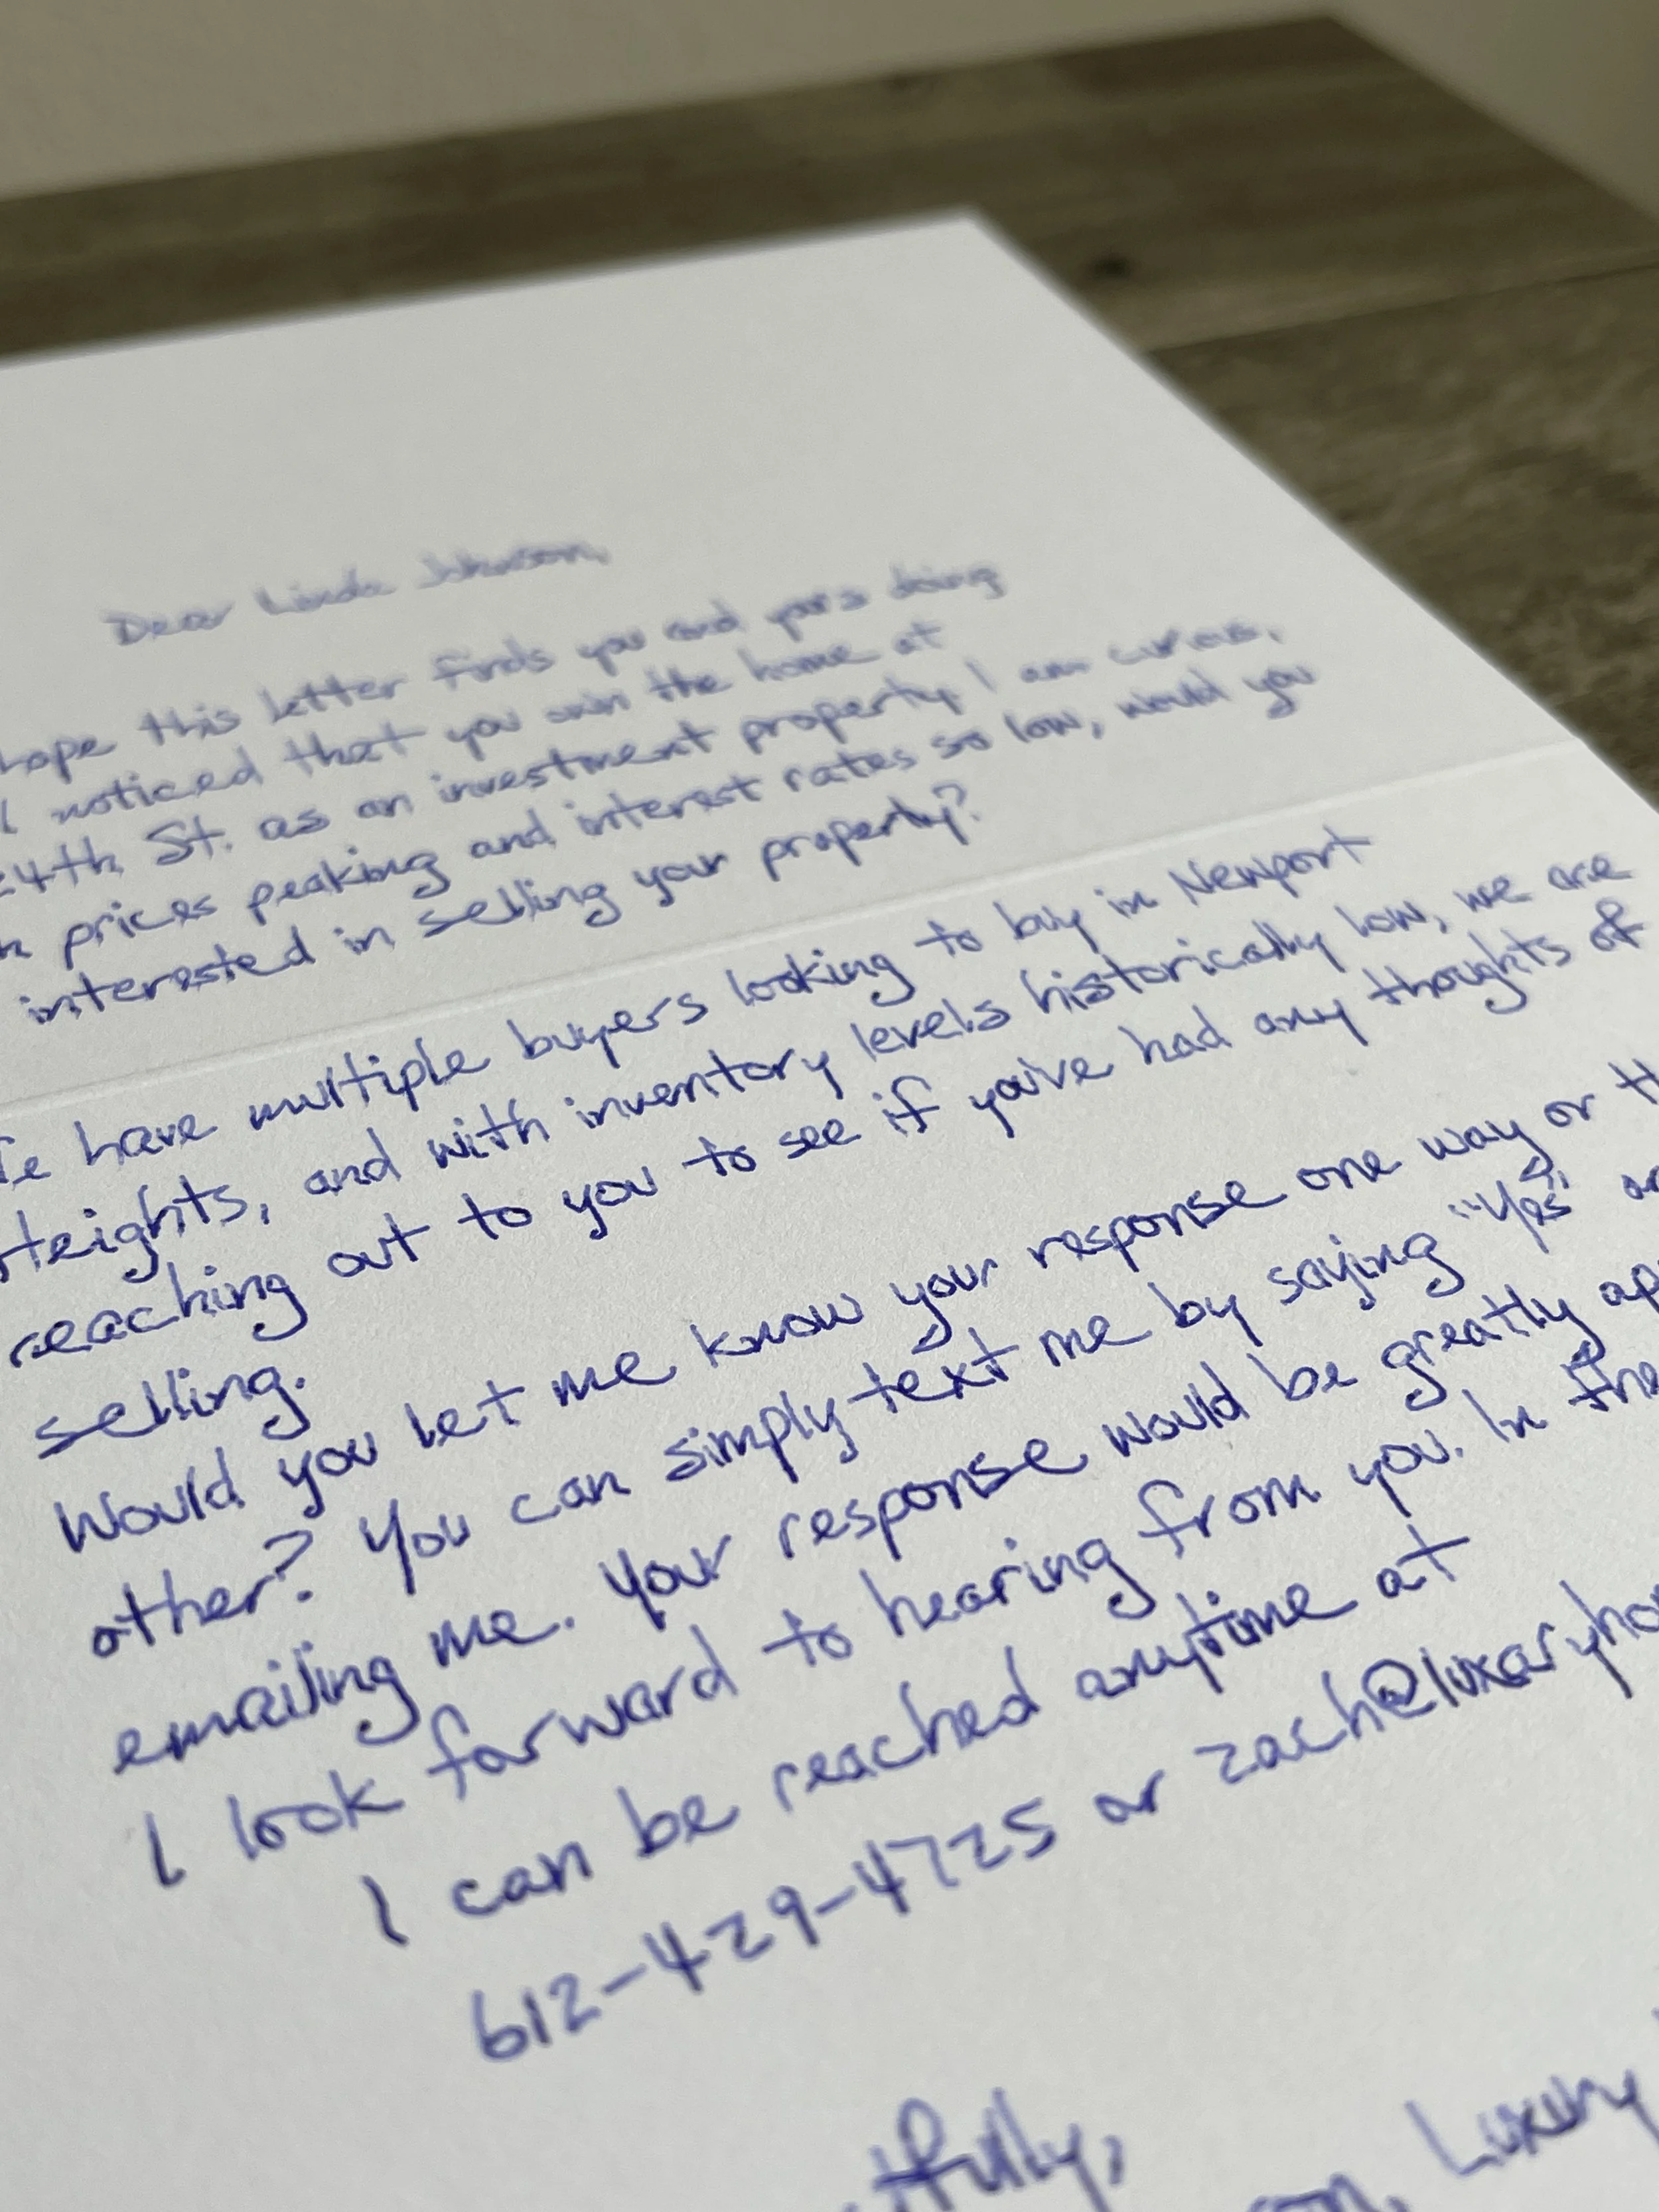 Dear Linda Johnson,
hope this letter finds you and yours doing
I noticed that you own the home at
4th St. as an investment property. I am curious,
prices peaking and interest rates so low, would you
interested in selling your property?
have multiple buyers looking to buy in Newport
Heights, and with inventory levels historically low, we are
reaching out to you to see if you've had any thoughts of
selling.
Would you let me know your response one way or th
other? You can simply text me by saying "Yes" or
emailing me. Your response would be greatly ap
I look forward to hearing from you. In the
I can be reached anytime at
612-429-4725 or zach@luxaryho
tfully,
on, Luxury